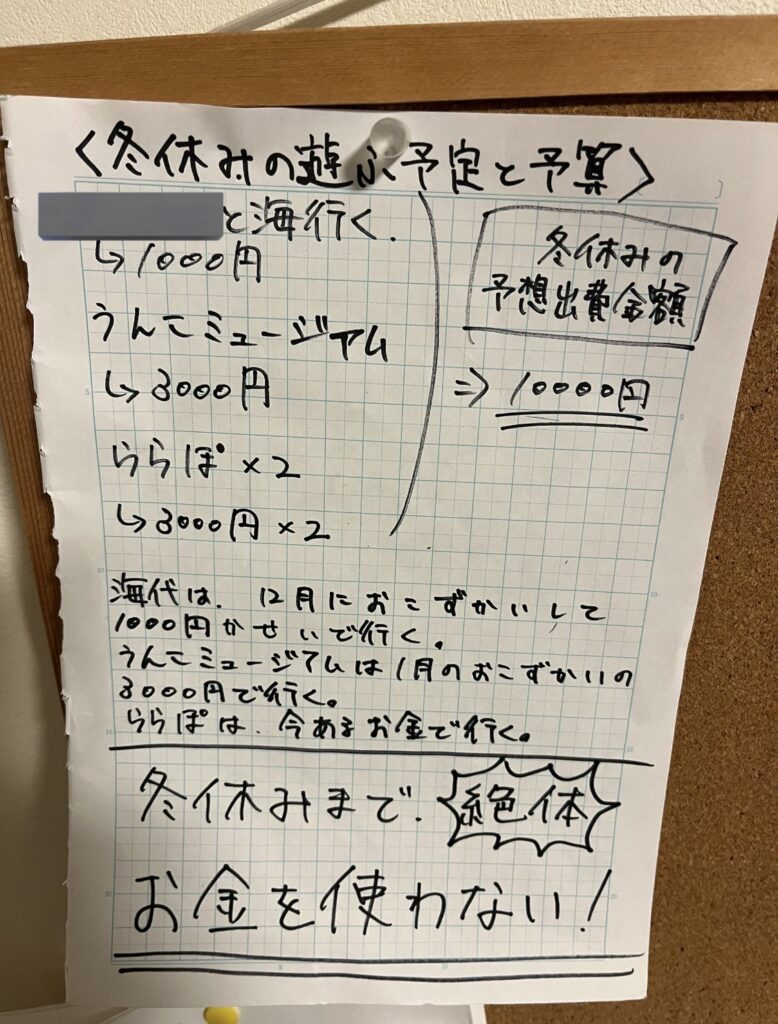 〈冬休みの遊ぶ予定と予算〉
と海行く.
↳1000円
うんこミュージアム
↳3000円
ららぽ×2
↳3000円×2
冬休みの
予想出費金額
⇒10000円
海代は、12月におこずかいして
1000円かせいで行く。
うんこミュージアムは1月のおこずかいの
3000円で行く。
ららぽは、今あるお金で行く。
冬休みまで、絶体
お金を使わない!